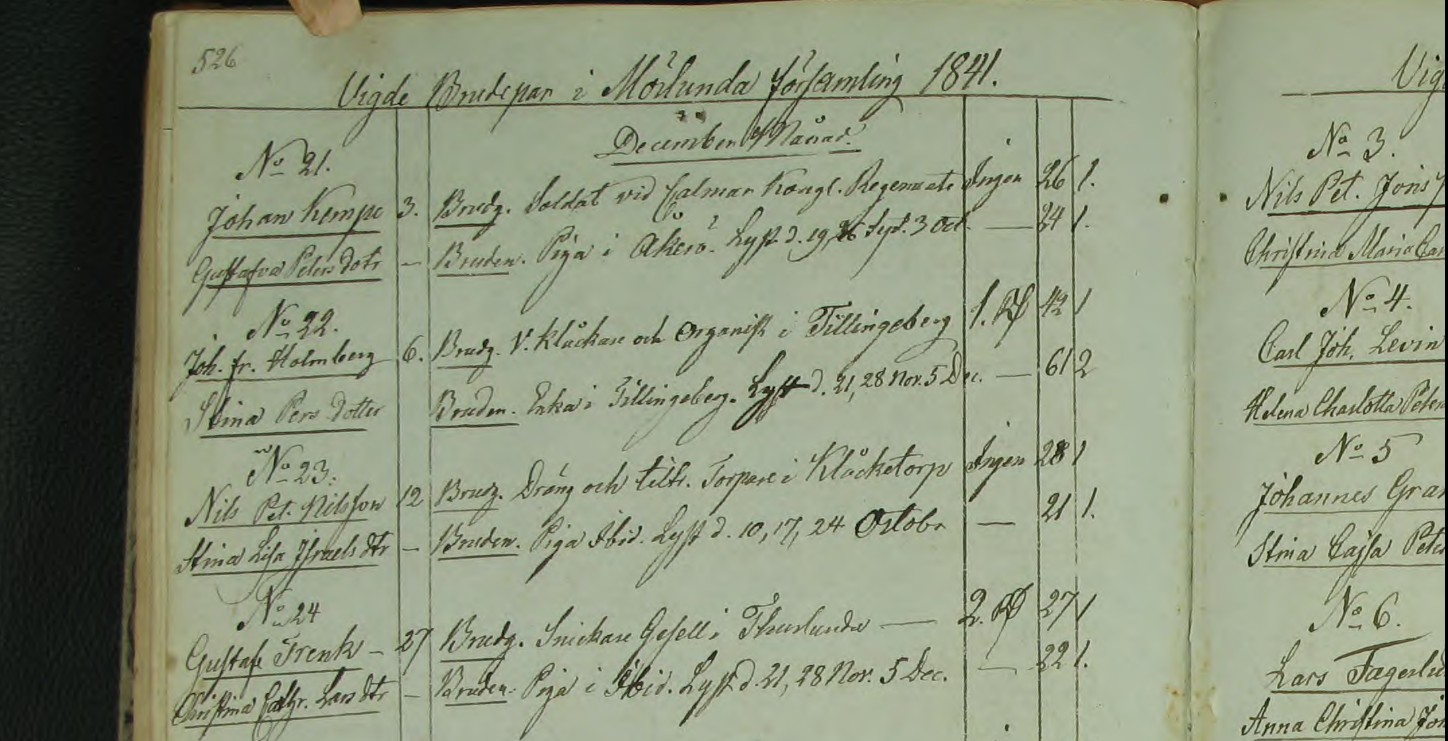 526
Vigde Brudepar i Mörlunda församling 1841.
December Månad.
No 21.
Johan Kempe 3. Brudg. Soldat vid Calmar Kongl. Regemente Ingen 26 1.
Gustafva Peters dotr – Bruden. Piga i Åkerö. Lyst d. 19, 26 Sept. 3 Oct. — 24 1.
No 22.
Joh. fr. Holmberg 6. Brudg. V. Klåckare och Organist i Tillingeberg 1. 42 1
Stina Pers Dotter Bruden. Enka i Tillingeberg. Lyst d. 21, 28 Nov. 5 Dec. — 61 2
No 23.
Nils Pet. Nilsson 12 Brudg. Dräng och tilltr. Torpare i Klåcketorp Ingen 28 1
Stina Lisa Israels dtr – Bruden. Piga Ibid. Lyst d. 10, 17, 24 Octobr — 21 1.
No 24
Gustaf Trenk – 27 Brudg. Snickare Gesell i Thuelunda — 2. 27 1
Christina Cathr. Lars dtr – Bruden. Piga i Ibid. Lyst d. 21, 28 Nov. 5 Dec. — 22 1.
Vig
No 3.
Nils Pet. Jons
Christina Maria Car
No 4.
Carl Joh. Levin
Helena Charlotta Peters
No 5
Johannes Gra
Stina Cajsa Pete
No 6.
Lars Fagerlu
Anna Christina Jon